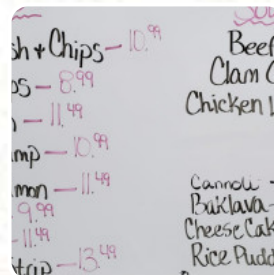 sh + Chips - 10.99
os - 8.99
- 11.49
mp - 10.99
mon - 11.49
9.99
- 11.49
trip - 13.49
Sou
Beef
Clam C
Chicken
Cannoli -
Baklava -
Cheese Cak
Rice Pudd